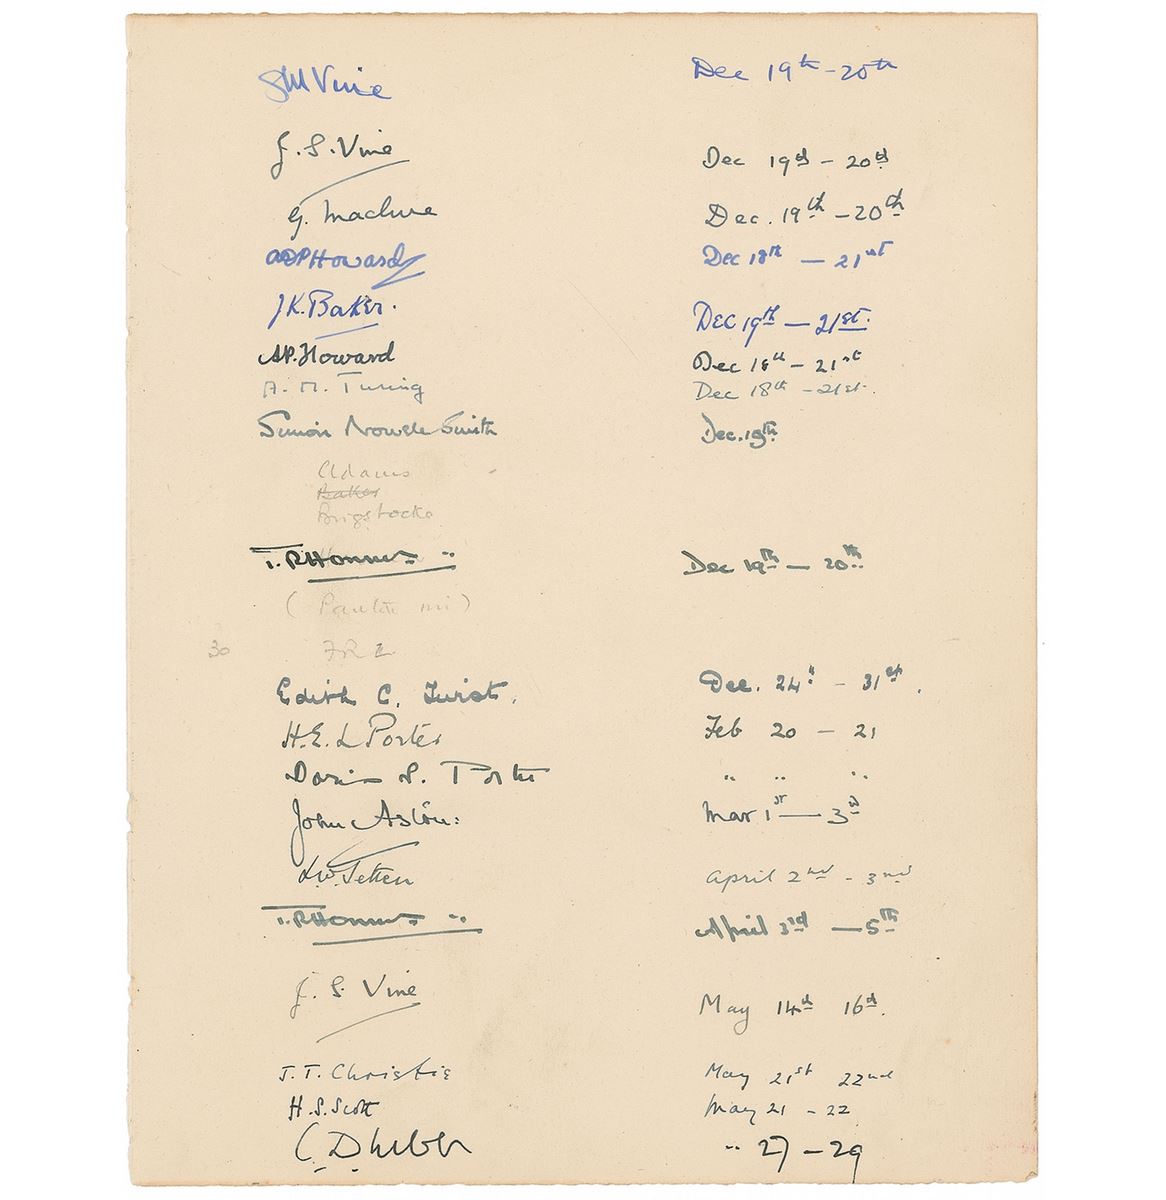 GM Vine Dec 19th - 20th
J. S. Vine Dec 19th - 20th
G. Maclure Dec. 19th - 20th
Howard Dec 18th - 21st
J.K. Baker. Dec 19th - 21st.
A.P. Howard Dec 18th - 21st
A. M. Turing Dec 18th - 21st.
Simon Nowell Smith Dec. 19th
Adams
Baker
Brigstocke
Dec 19th - 20th
30
Edith C. Dec. 24th - 31st.
H.E.L Porter Feb 20 - 21
Doris S. Porter " " "
John Aston: Mar 1st - 3rd
April 2nd - 3rd
April 3rd - 5th
J. S. Vine May 14th 16th.
J. T. Christie May 21st 22nd
H. S. Scott May 21 - 22
" 27 - 29